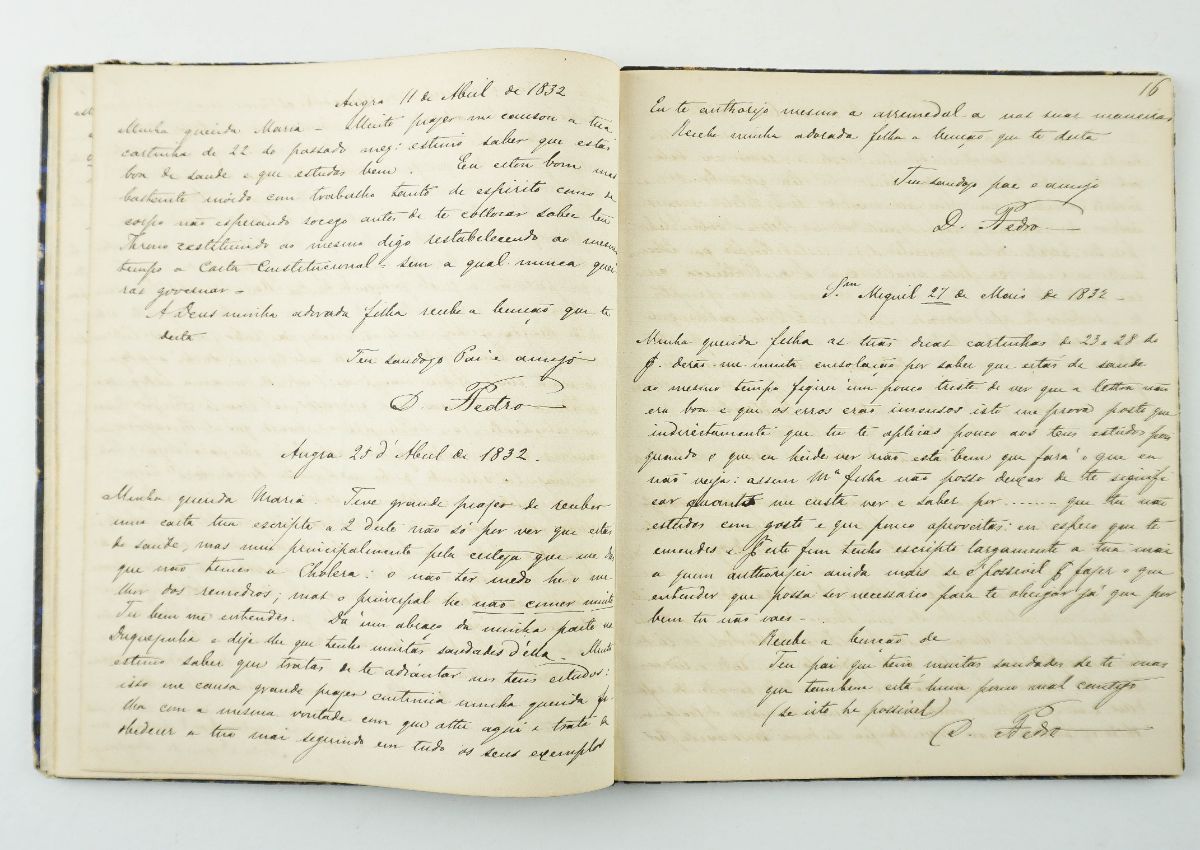 Angra 11 de Abril de 1832
Minha querida Maria - Muito prazer me causou a tua
cartinha de 22 do passado mez: estimo saber que estás
boa de saude e que estudas bem. Eu estou bom mas
bastante moido com trabalho tanto de espirito como de
corpo não esperando socego antes de te collocar sobre teu
Throno restituindo ao mesmo digo restabelecendo ao mesmo
tempo a Carta Constitucional - sem a qual nunca quei
ras governar -
A Deus minha adorada filha recebe a benção que te
deita
Teu saudozo Pai e amigo
D. Pedro
Angra 25 d'Abril de 1832.
Minha querida Maria. Tive grande prazer de receber
uma carta tua escripta a 2 d'este não só por ver que estás
de saude, mas mui principalmente pela certeza que me dás
que não temes a Cholera: o não ter medo he o me
lhor dos remedios; mas o principal he não comer muito
Tu bem me entendes. Dá um abraço da minha parte na
Duquezinha e dize-lhe que tenho muitas saudades d'ella. Muito
estimo saber que tratas de te adiantar nos teus estudos:
isso me causa grande prazer continua minha querida fi
lha com a mesma vontade com que athe aqui e trata de
obedecer a tua mai seguindo em tudo os seus exemplos
16
Eu te authorizo mesmo a arremedal-a nas suas maneiras
Recebe minha adorada filha a benção que te deita
Teu saudozo pae e amigo
D. Pedro
S. Miguel 27 de Maio de 1832 -
Minha querida filha as tuas duas cartinhas de 23 e 28 do
derão-me muita consolação por saber que estás de saude
ao mesmo tempo fiquei um pouco triste de ver que a lettra não
era boa e que os erros erão immensos isto me prova posto que
indirectamente que tu te aplicas pouco aos teus estudos pois
quando o que eu heide ver não está bem que fará o que eu
não vejo: assim M.ª filha não posso deixar de te signifi
car quanto me custa ver e saber por ........ que tu não
estudas com gosto e que pouco aproveitas: eu espero que te
emendes e este fim tenho escripto largamente a tua mai
a quem authorizei ainda mais se possivel fazer o que
entender que possa ser necessario para te obrigar já que por
bem tu não vaes -
Recebe a benção de
Teu pai que tem muitas saudades de ti mas
que tambem está hum pouco mal comtigo
(se isto he possivel)
D. Pedro